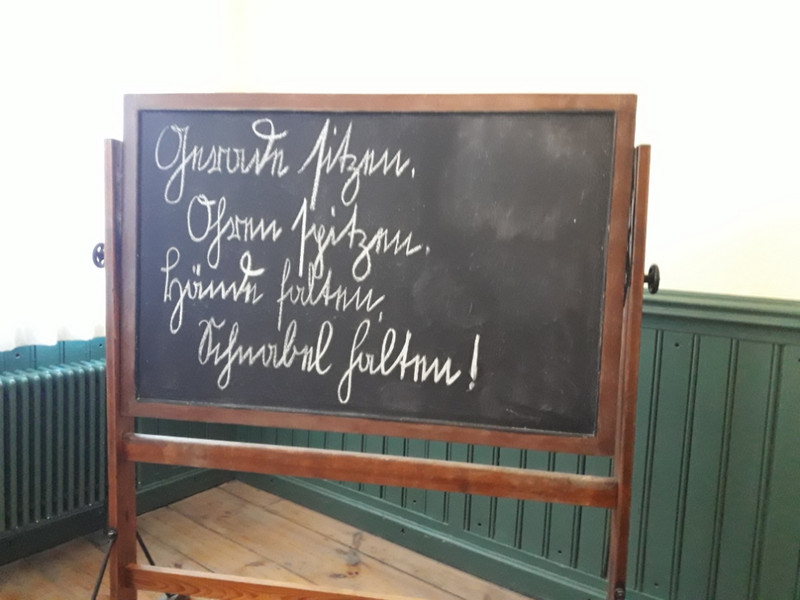 Gerade sitzen.
Ohren spitzen.
Hände falten,
Schnabel halten!